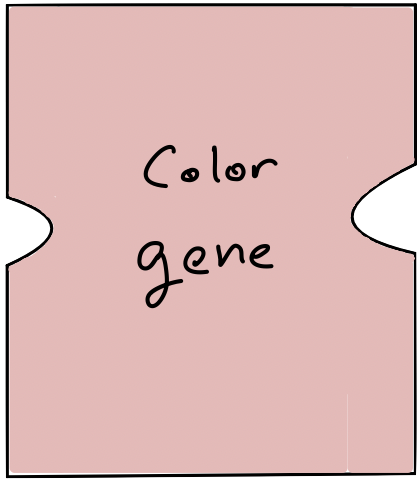 Color
gene